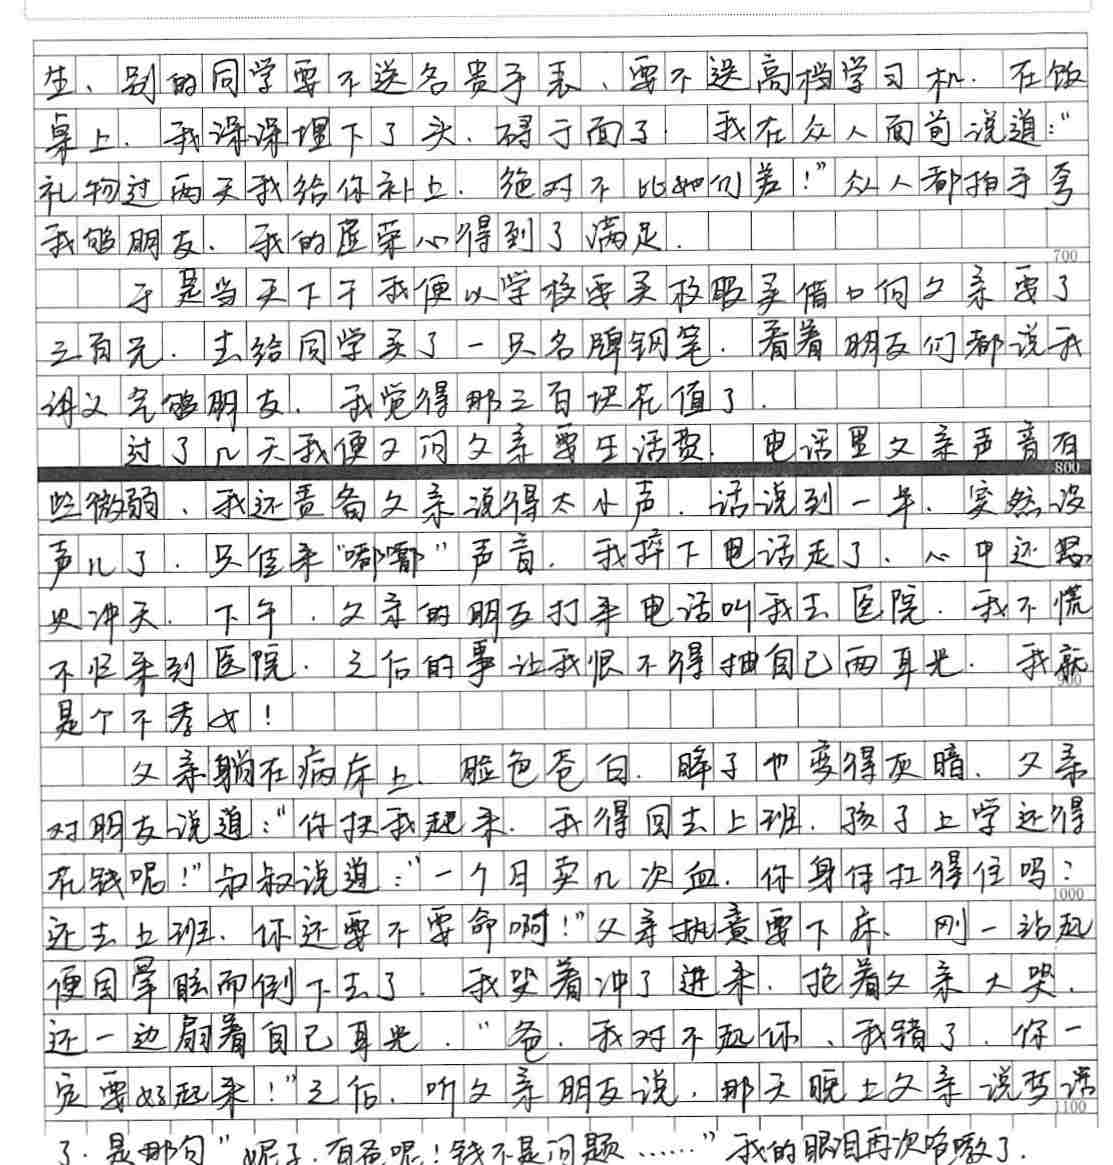 生、别的同学要不送名贵手表、要不送高档学习机.在饭
桌上.我深深埋下了头.碍于面子.我在众人面前说道："
礼物过两天我给你补上.绝对不比她们差！"众人都拍手夸
我够朋友.我的虚荣心得到了满足.
700
于是当天下午我便以学校要买校服买借口问父亲要了
三百元.去给同学买了一只名牌钢笔.看着朋友们都说我
讲义气够朋友.我觉得那三百块花值了.
过了几天我便又问父亲要生活费.电话里父亲声音有
800
些微弱、我还责备父亲说得太小声.话说到一半.突然没
声儿了.只传来"嘟嘟"声音.我摔下电话走了.心中还怒
火冲天.下午.父亲的朋友打来电话叫我去医院.我不慌
不忙来到医院.之后的事让我恨不得抽自己两耳光.我就
900
是个不孝女！
父亲躺在病床上.脸色苍白.眸子也变得灰暗.父亲
对朋友说道："你扶我起来.我得回去上班.孩子上学还得
花钱呢！"叔叔说道："一个月卖几次血.你身体扛得住吗？
1000
还去上班.你还要不要命啊！"父亲执意要下床、刚一站起
便因晕眩而倒下去了.我哭着冲了进来.抱着父亲大哭.
还一边扇着自己耳光."爸.我对不起你、我错了.你一
定要好起来！"之后.听父亲朋友说.那天晚上父亲说梦话
1100
了.是那句"妮子.有爸呢！钱不是问题……"我的眼泪再次哈嗷了.